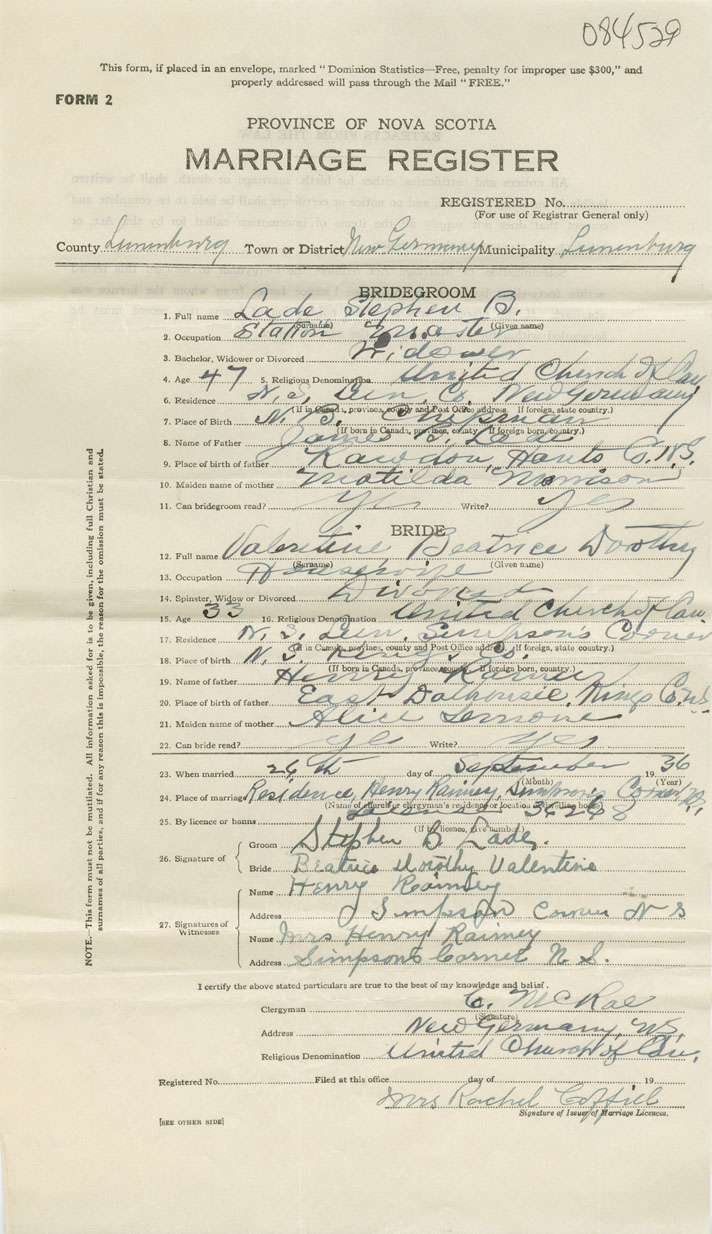 084529
This form, if placed in an envelope, marked "Dominion Statistics—Free, penalty for improper use $300," and
properly addressed will pass through the Mail "FREE."
FORM 2
PROVINCE OF NOVA SCOTIA
MARRIAGE REGISTER
REGISTERED No.
(For use of Registrar General only)
County Lunenburg Town or District New Germany Municipality Lunenburg
BRIDEGROOM
1. Full name Lade Stephen B.
(Surname) (Given name)
2. Occupation Station Master
3. Bachelor, Widower or Divorced Widower
4. Age 47 5. Religious Denomination United Church of Can
6. Residence N. S. Lun. Co. New Germany
(If in Canada, province, county and Post Office address. If foreign, state country.)
7. Place of Birth N. B. Chipman
(If born in Canada, province, county. If foreign born, country.)
8. Name of Father James B. Lade
9. Place of birth of father Rawdon, Hants Co. N.S.
10. Maiden name of mother Matilda Morrison
11. Can bridegroom read? Yes Write? Yes
BRIDE
12. Full name Valentine Beatrice Dorothy
(Surname) (Given name)
13. Occupation Housewife
14. Spinster, Widow or Divorced Divorced
15. Age 33 16. Religious Denomination United Church of Can
17. Residence N. S. Lun. Simpson's Corner
(If in Canada, province, county and Post Office address. If foreign, state country.)
18. Place of birth N. S. Kings Co.
(If born in Canada, province, county. If foreign born, country.)
19. Name of father Henry Rainey
20. Place of birth of father East Dalhousie, Kings Co. N.S.
21. Maiden name of mother Alice
22. Can bride read? Yes Write? Yes
23. When married 26th day of September 1936
(Month) (Year)
24. Place of marriage Residence, Henry Rainey, Simpson's Corner N.S.
(Name of church or clergyman's residence or location of dwelling house)
25. By licence or banns License 34248
(If by licence, give number)
26. Signature of
Groom Stephen B. Lade.
Bride Beatrice Dorothy Valentine
27. Signatures of Witnesses
Name Henry Rainey
Address Simpson Corner N S
Name Mrs Henry Rainey
Address Simpsons Corner N. S.
I certify the above stated particulars are true to the best of my knowledge and belief.
Clergyman C. McRae
(Signature)
Address New Germany, N.S.
Religious Denomination United Church of Can.
Registered No. Filed at this office day of 19
Mrs Rachel
Signature of Issuer of Marriage Licences.
[SEE OTHER SIDE]
NOTE.—This form must not be mutilated. All information asked for is to be given, including full Christian and
surnames of all parties, and if for any reason this is impossible, the reason for the omission must be stated.